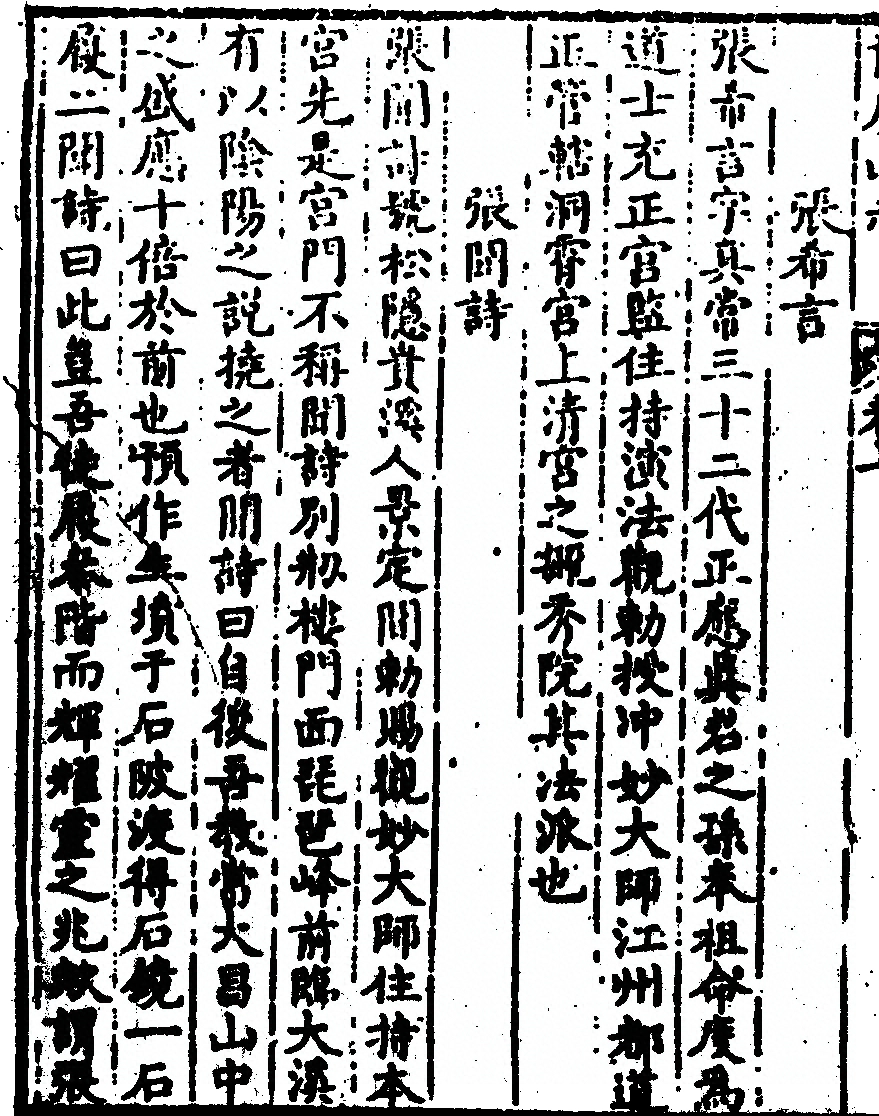 張希言
張希言字真常三十二代正應真君之孫奉祖命度為
道士充正官監住持演法觀勅授沖妙大師江州都道
正管轄洞霄宮上清宮之擷秀院其法派也
張聞詩
張聞詩號松隱貴溪人景定間勅賜觀妙大師住持本
宮先是宮門不稱聞詩別剏樓門面琵琶峰前臨大溪
有以陰陽之説撓之者聞詩曰自後吾教當大昌山中
之盛應十倍於前也預作生墳于石陂浚得石鏡一石
履二聞詩曰此豈吾徒履泰階而輝耀靈之兆歟謂張